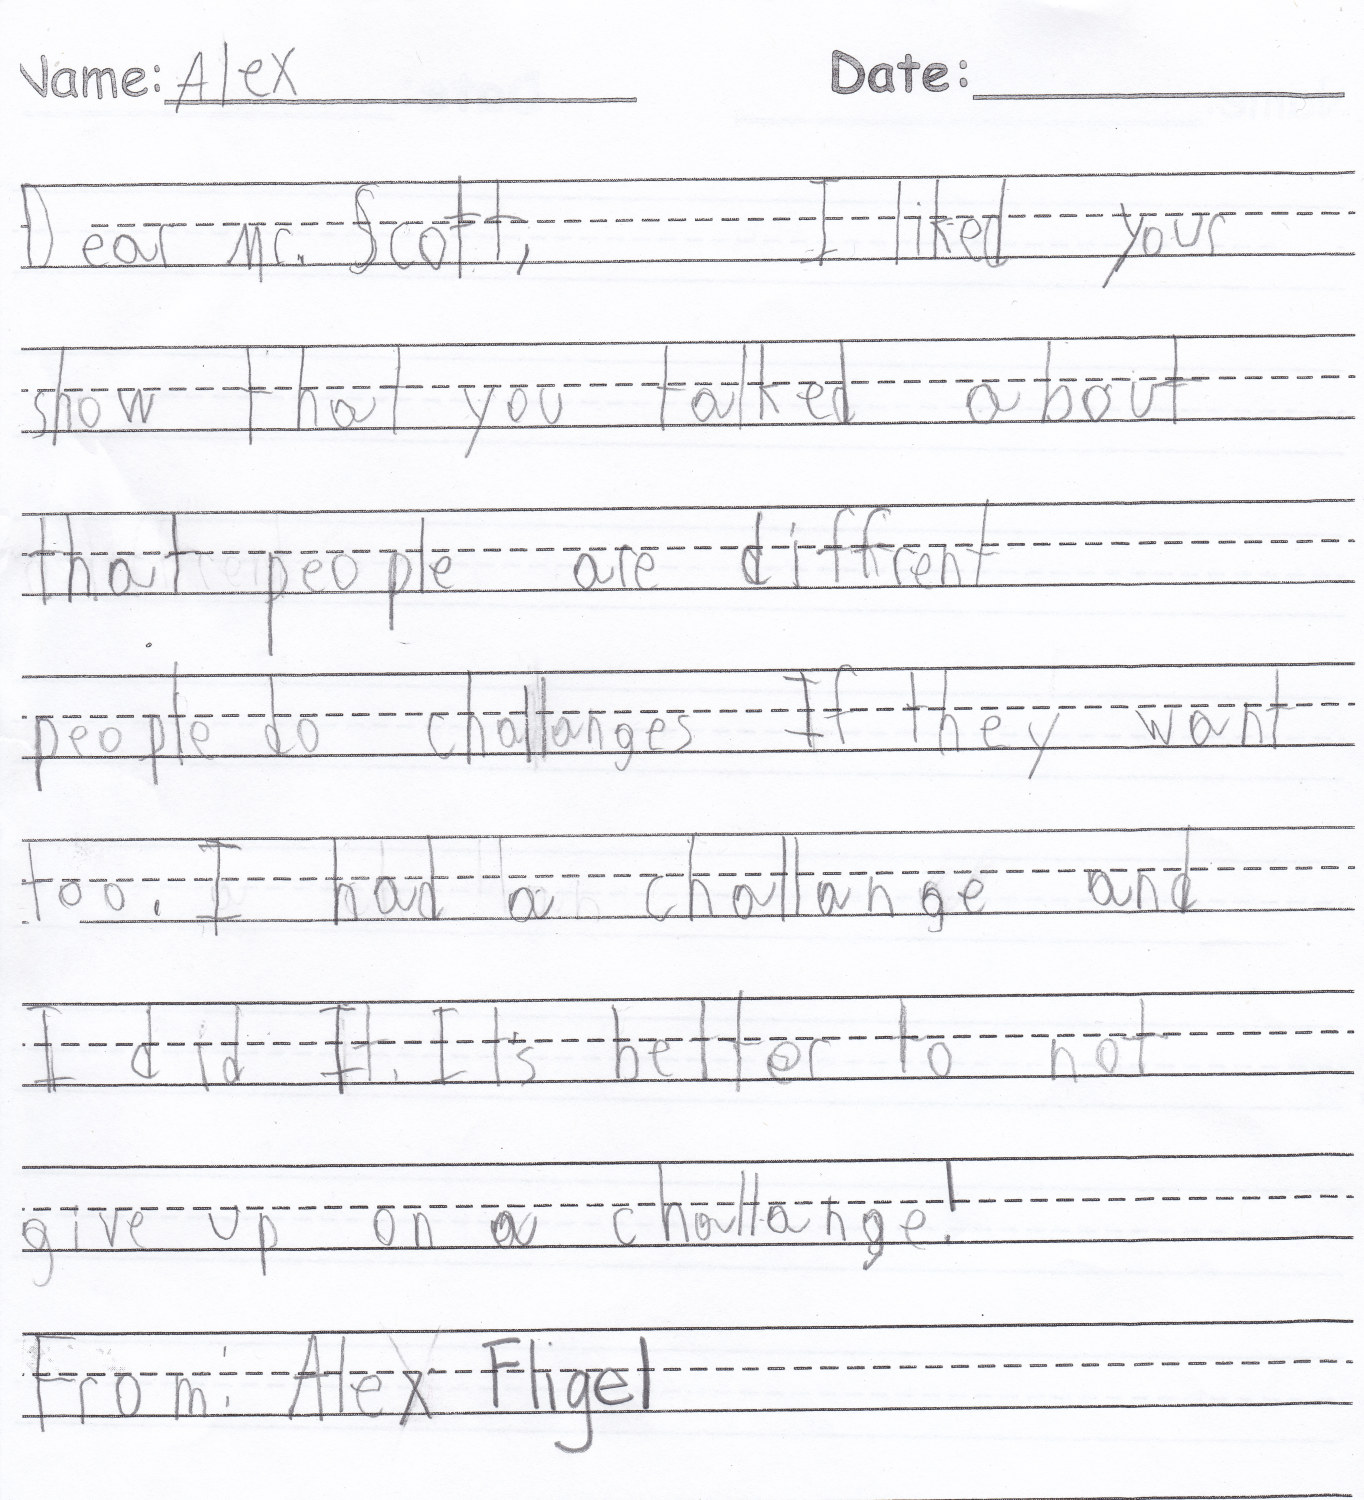 Name: Alex Date:
Dear Mr. Scott, I liked your
show that you talked about
that people are diffrent
people do challanges If they want
too. I had a challange and
I did It. It's better to not
give up on a challange!
From: Alex Fligel